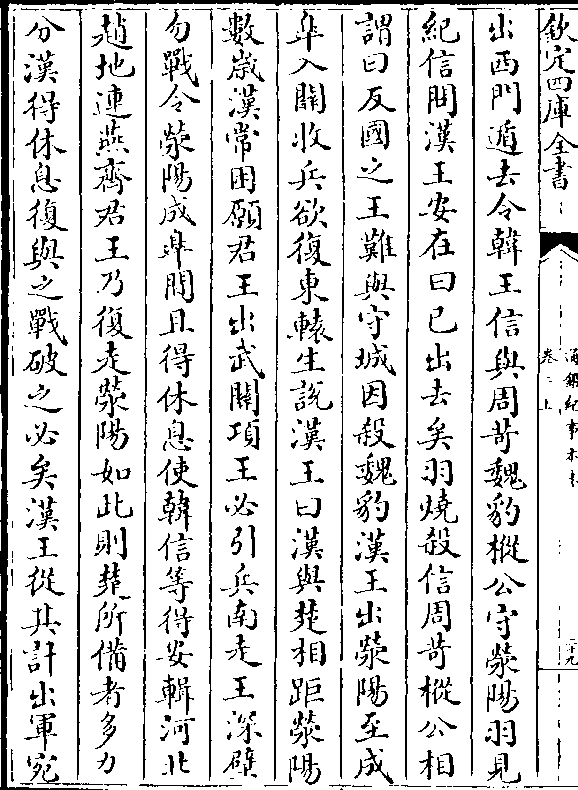 欽定四庫全書
通鑑紀事本末
卷二上
二十九
出西門遁去令韓王信與周苛魏豹樅公守滎陽羽見
紀信問漢王安在曰已出去矣羽燒殺信周苛樅公相
謂曰反國之王難與守城因殺魏豹漢王出滎陽至成
臯入關收兵欲復東轅生說漢王曰漢與楚相距滎陽
數歲漢常困願君王出武關項王必引兵南走王深壁
勿戰令滎陽成臯間且得休息使韓信等得安輯河北
趙地連燕齊君王乃復走滎陽如此則楚所備者多力
分漢得休息復與之戰破之必矣漢王從其計出軍宛